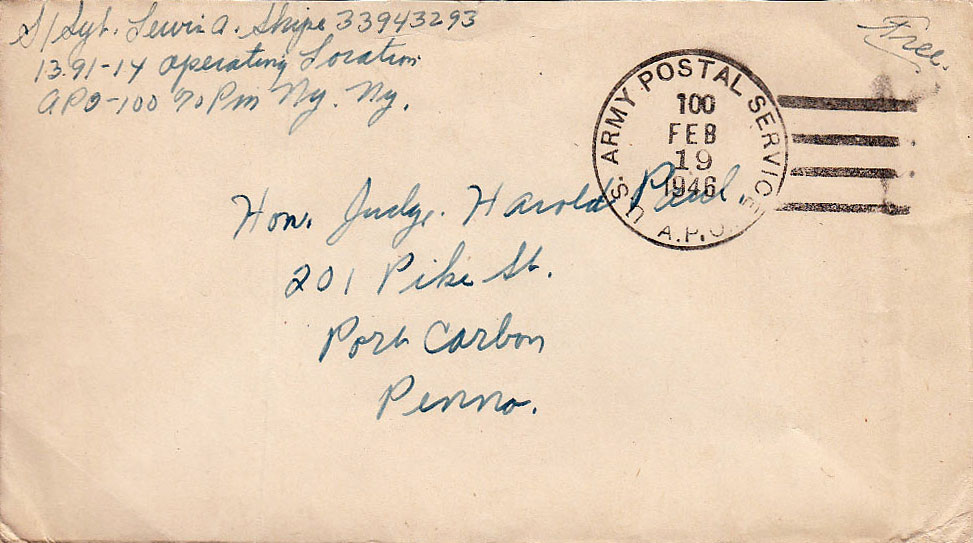 S/Sgt. Lewis A. Skipe 33943293
1391-14 Operating Location
APO-100 % Pm Ny. Ny.
Free.
U.S. ARMY POSTAL SERVICE
100
FEB
19
1946
A.P.O.
Hon. Judge. Harold Paul
201 Pike St.
Port Carbon
Penna.